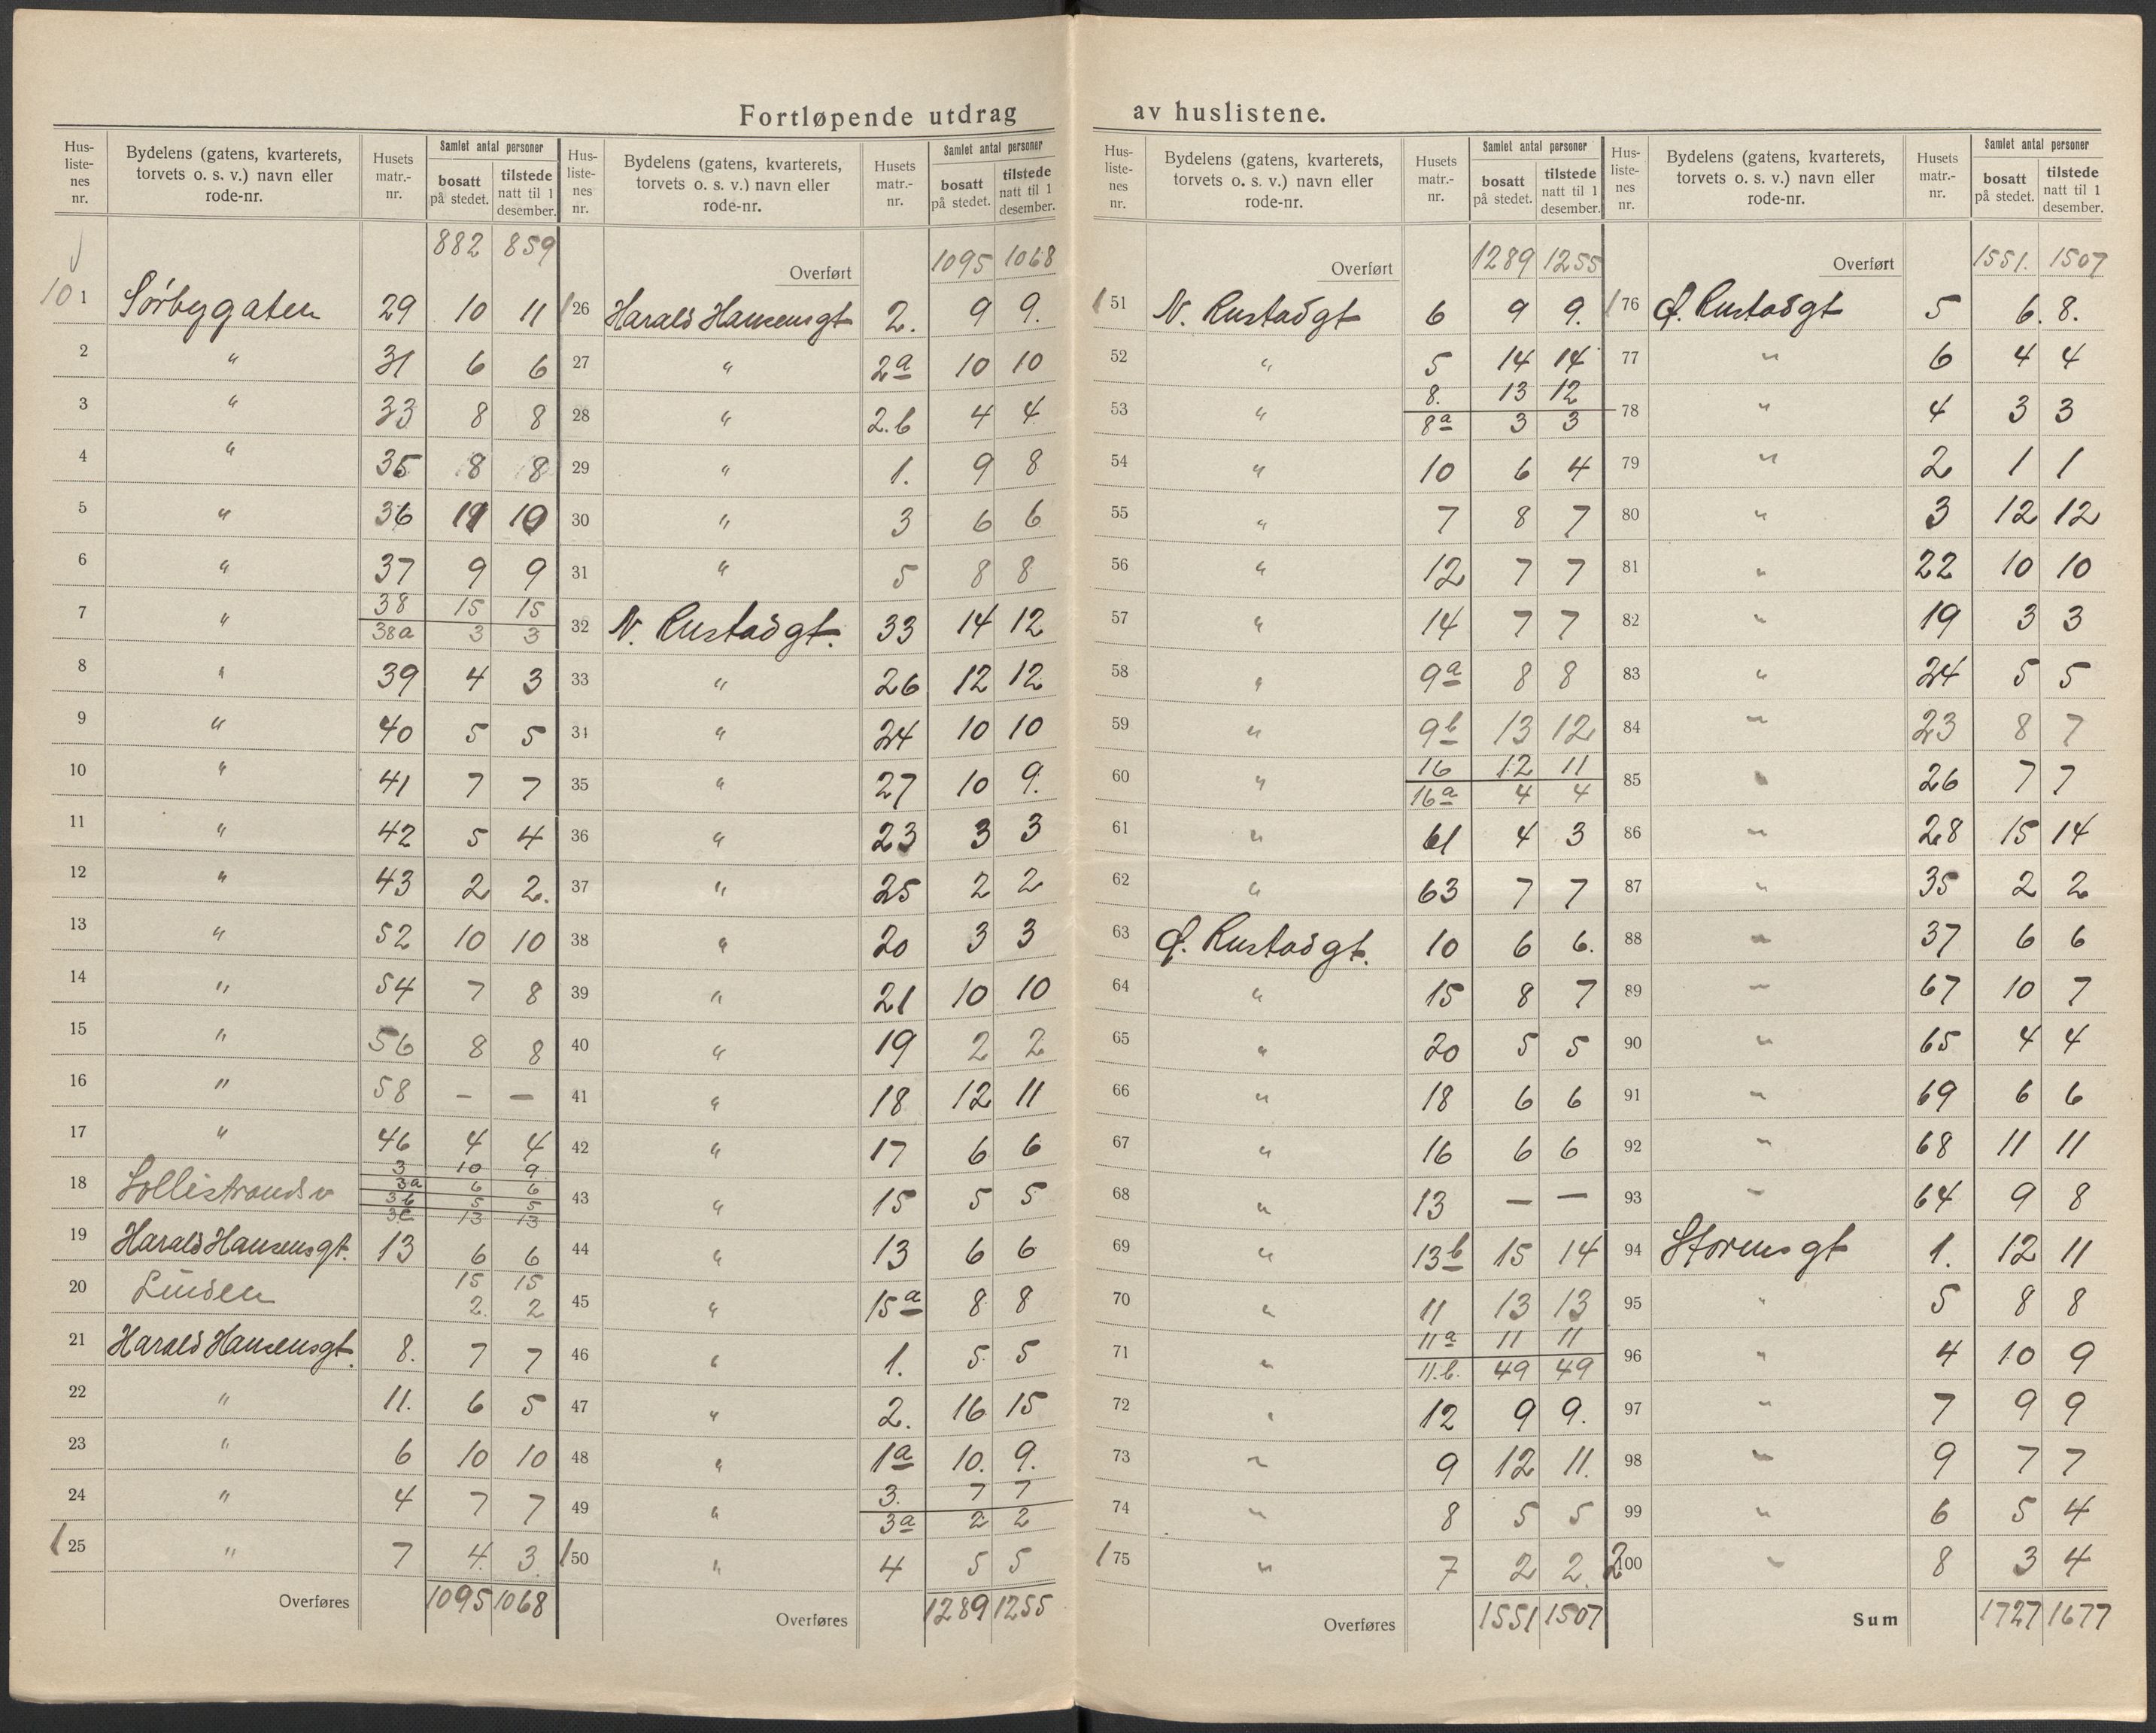 Fortløpende utdrag av huslistene.
Hus-liste-nes nr. | Bydelens (gatens, kvarterets, torvets o. s. v.) navn eller rode-nr. | Husets matr.-nr. | Samlet antal personer | bosatt på stedet. | tilstede natt til 1 desember.
882 859
10 1 Sørbygaten 29 10 11
2 " 31 6 6
3 " 33 8 8
4 " 35 8 8
5 " 36
6 " 37 9 9
7 " 38 15 15
38a 3 3
8 " 39 4 3
9 " 40 5 5
10 " 41 7 7
11 " 42 5 4
12 " 43 2 2.
13 " 52 10 10
14 " 54 7 8
15 " 56 8 8
16 " 58 – –
17 " 46 4 4
18 Sollistrandsv 3 10 9
3a 6 6
3b 5 5
3c 13 13
19 Harald Hansensgt. 13 6 6
20 Linden 15 15
2. 2
21 Harald Hansensgt. 8. 7 7
22 " 11. 6 5
23 " 6 10 10
24 " 4 7 7
1 25 " 7 4. 3.
Overføres 1095 1068
Hus-liste-nes nr. | Bydelens (gatens, kvarterets, torvets o. s. v.) navn eller rode-nr. | Husets matr.-nr. | Samlet antal personer | bosatt på stedet. | tilstede natt til 1 desember.
Overført 1095 1068
1 26 Harald Hansensgt 2. 9 9.
27 " 2a 10 10
28 " 2.b 4 4
29 " 1. 9 8
30 " 3 6 6
31 " 5 8 8
32 N. Rustadgt. 33 14 12
33 " 26 12 12
34 " 24 10 10
35 " 27 10 9.
36 " 23 3 3
37 " 25 2 2
38 " 20 3 3
39 " 21 10 10
40 " 19 2 2
41 " 18 12 11
42 " 17 6 6
43 " 15 5 5
44 " 13 6 6
45 " 15a 8 8
46 " 1. 5 5
47 " 2. 16 15
48 " 1a 10. 9.
49 " 3. 7 7
3a 2 2
1 50 " 4 5 5
Overføres 1289 1255
Hus-liste-nes nr. | Bydelens (gatens, kvarterets, torvets o. s. v.) navn eller rode-nr. | Husets matr.-nr. | Samlet antal personer | bosatt på stedet. | tilstede natt til 1 desember.
Overført 1289 1255
1 51 N. Rustadgt 6 9 9.
52 " 5 14 14
53 " 8. 13 12
8a 3 3
54 " 10 6 4
55 " 7 8 7
56 " 12 7 7
57 " 14 7 7
58 " 9a 8 8
59 " 9b 13 12
60 " 16 12 11
16a 4 4
61 " 61 4 3
62 " 63 7 7
63 Ø. Rustadgt. 10 6 6.
64 " 15 8 7
65 " 20 5 5
66 " 18 6 6
67 " 16 6 6
68 " 13 – –
69 " 13b 15 14
70 " 11 13 13
71 " 11a 11 11
11.b. 49 49
72 " 12 9 9.
73 " 9 12 11.
74 " 8 5 5
1 75 " 7 2 2.
Overføres 1551 1507
Hus-liste-nes nr. | Bydelens (gatens, kvarterets, torvets o. s. v.) navn eller rode-nr. | Husets matr.-nr. | Samlet antal personer | bosatt på stedet. | tilstede natt til 1 desember.
Overført 1551. 1507
1 76 Ø. Rustadgt 5 6. 8.
77 " 6 4 4
78 " 4 3 3
79 " 2 1 1
80 " 3 12 12
81 " 22 10 10
82 " 19 3 3
83 " 24 5 5
84 " 23 8 7
85 " 26 7 7
86 " 28 15 14
87 " 35 2 2
88 " 37 6 6
89 " 67 10 7
90 " 65 4 4
91 " 69 6 6
92 " 68 11 11
93 " 64 9 8
94 Storensgt 1. 12 11
95 " 5 8 8
96 " 4 10 9
97 " 7 9 9
98 " 9 7 7
99 " 6 5 4
2 100 " 8 3 4
Sum 1727 1677